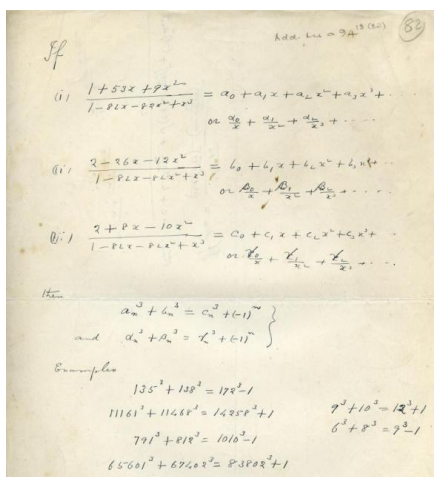 82
If
(i) (1+53x+9x²)/(1-82x-82x²+x³) = a₀+a₁x+a₂x²+a₃x³+ ....
or α₀/x + α₁/x² + α₂/x³ + ....
(ii) (2-26x-12x²)/(1-82x-82x²+x³) = b₀+b₁x+b₂x²+b₃x³+ ....
or β₀/x + β₁/x² + β₂/x³ + ....
(iii) (2+8x-10x²)/(1-82x-82x²+x³) = c₀+c₁x+c₂x²+c₃x³+ ....
or γ₀/x + γ₁/x² + γ₂/x³ + ....
then
aₙ³+bₙ³ = cₙ³+(-1)ⁿ
and αₙ³+βₙ³ = γₙ³+(-1)ⁿ }
Examples
135³+138³ = 172³-1
11161³+11468³ = 14258³+1
9³+10³ = 12³+1
791³+812³ = 1010³-1
6³+8³ = 9³-1
65601³+67402³ = 83802³+1